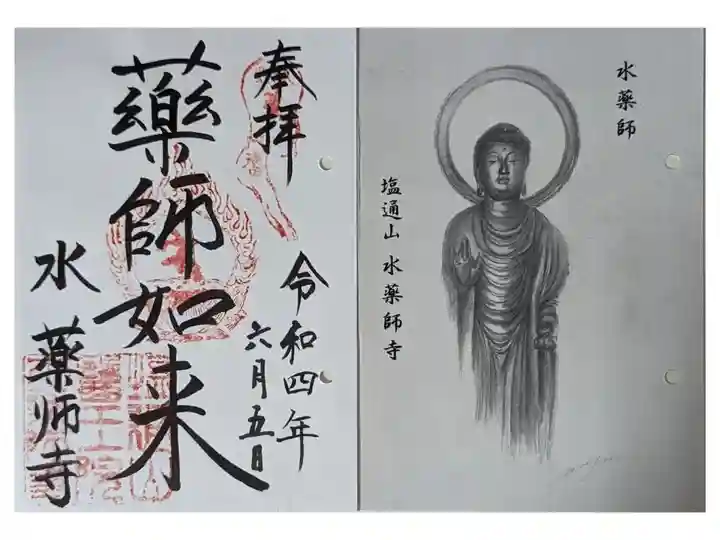 奉拝
藥師如来
令和四年
六月五日
水藥师寺
水薬師
塩通山 水薬師寺